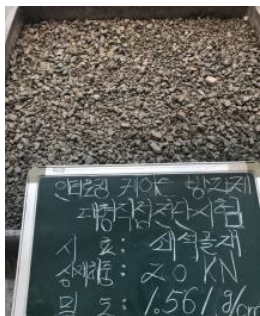 인터로킹 케이슨 방파제
대형직접전단시험
시 료: 쇄석골재
상재하중: 20 KN
밀 도: 1.561 g/cm